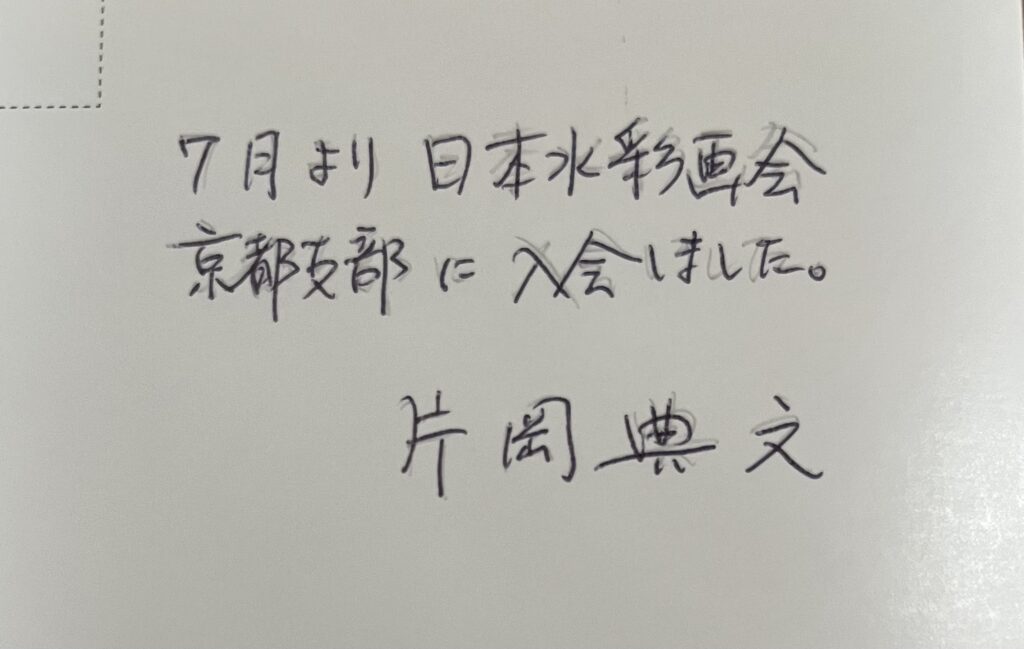 7月より 日本水彩画会
京都支部に 入会しました。
片岡典文